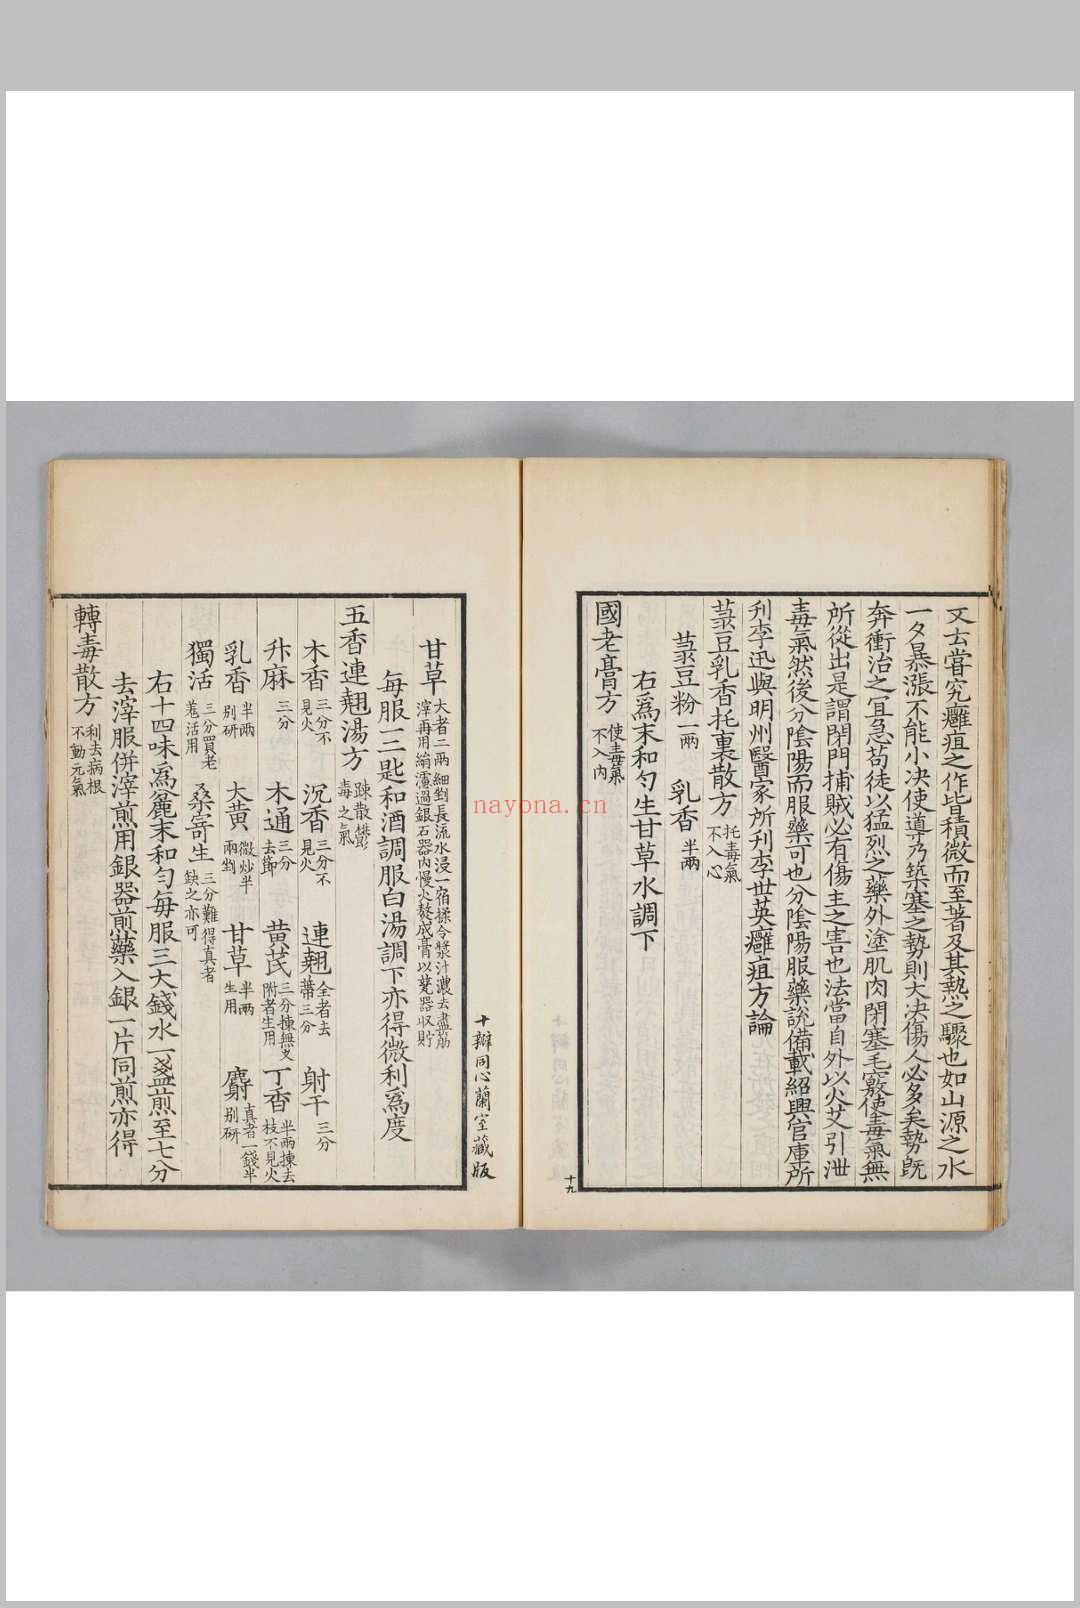 又云嘗究癰疽之作皆積微而至著及其熱之驟也如山源之水
一夕暴漲不能小决使導乃築塞之勢則大决傷人必多矣勢旣
奔衝治之宜急苟徒以猛烈之藥外塗肌肉閉塞毛竅使毒氣無
所從出是謂閉門捕賊必有傷主之害也法當自外以火艾引泄
毒氣然後分陰陽而服藥可也分陰陽服藥說備載紹興官庫所
刋李迅與明州醫家所刋李世英癰疽方論
菉豆乳香托裏散方 托毒氣不入心
菉豆粉一兩 乳香半兩
右爲末和勻生甘草水調下
國老膏方 使毒氣不入内
十九
十瓣同心蘭室藏版
甘草 大者二兩細剉長流水浸一宿揉令漿汁濃去盡筋滓再用絹濾過銀石器内慢火熬成膏以甆器収貯
每服一二匙和酒調服白湯調下亦得微利爲度
五香連翹湯方 踈散欝毒之氣
木香三分不見火 沉香三分不見火 連翹全者去蔕三分 射干三分
升麻三分 木通三分去節 黃芪三分揀無叉附者生用 丁香半兩揀去枝不見火
乳香半兩别研 大黃微炒半兩剉 甘草半兩生用 麝真者一錢半别研
獨活三分買老羗活用 桑寄生三分難得真者缺之亦可
右十四味爲麄末和勻每服三大錢水一盞煎至七分
去滓服併滓煎用銀器煎藥入銀一片同煎亦得
轉毒散方 利去病根不動元氣
nayona.cn